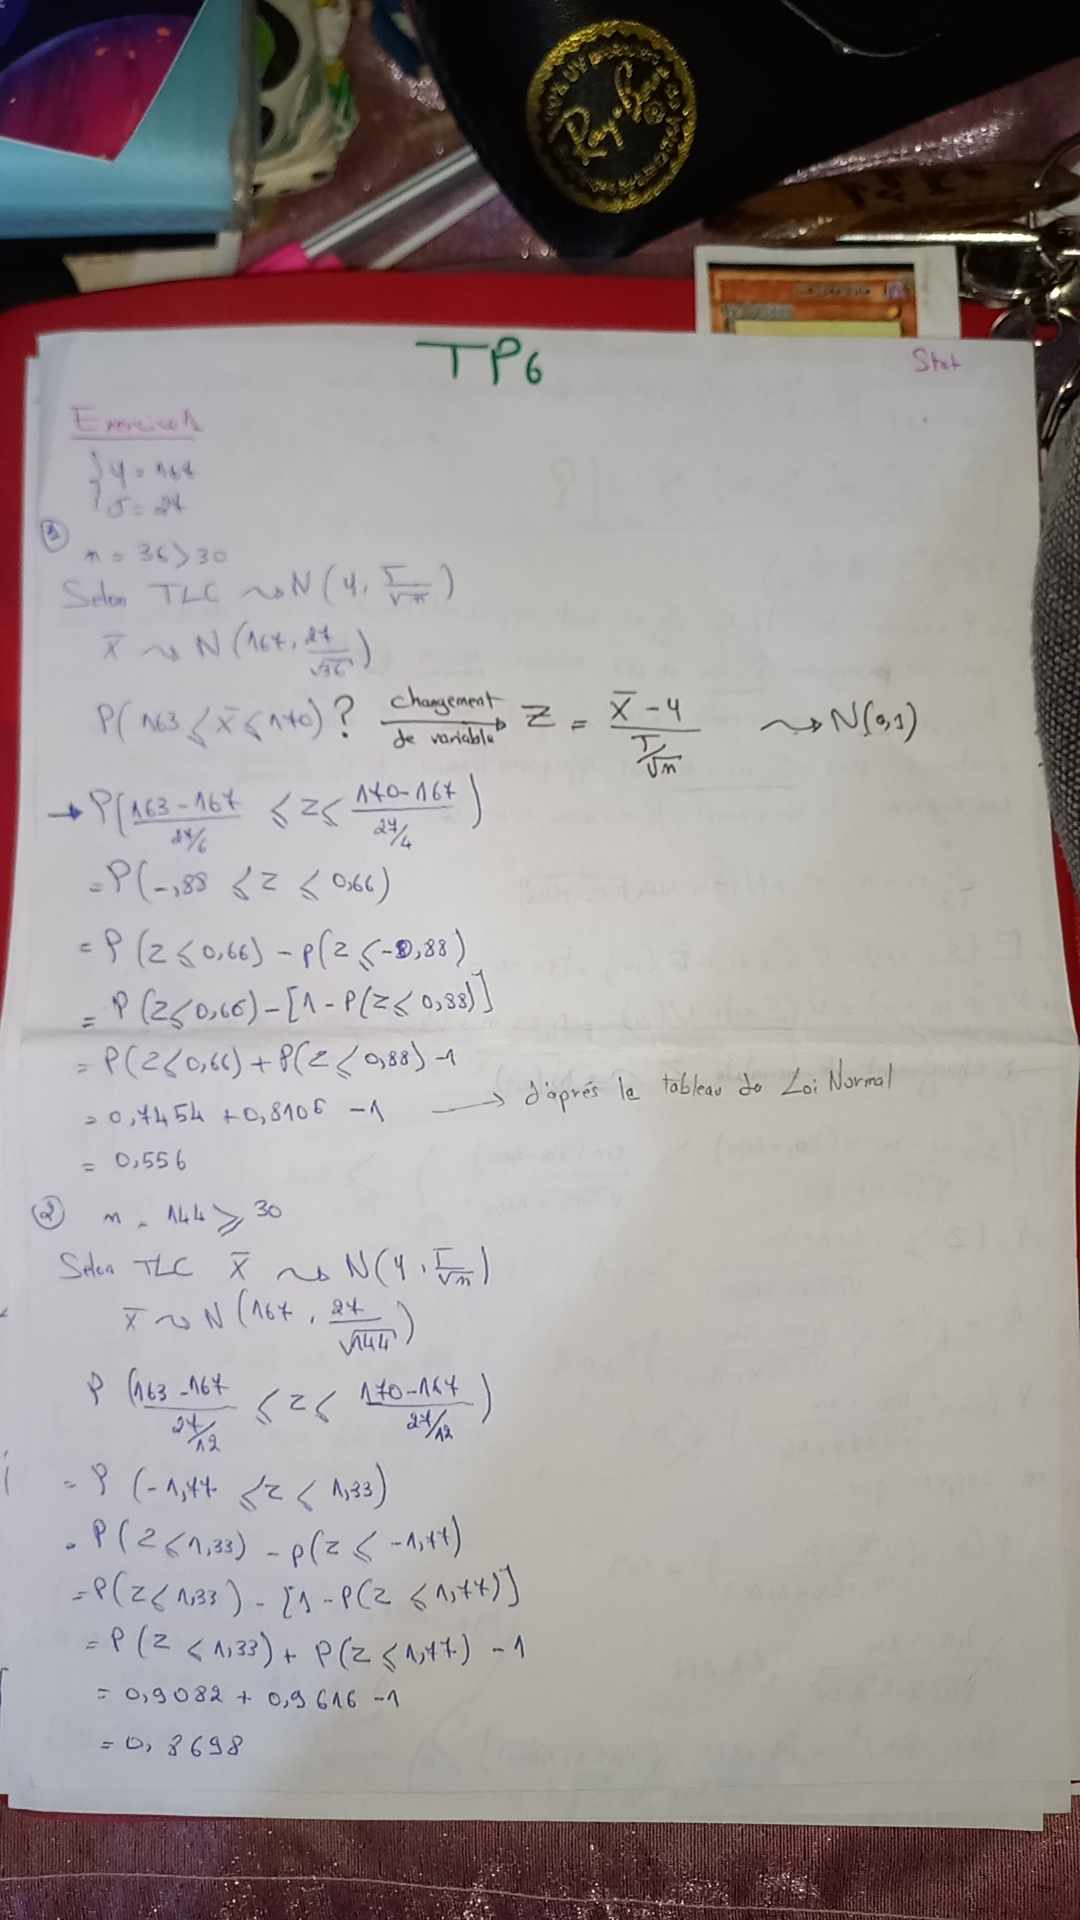 Ray-Ban
TP6
Stat
Exercice 1
{ μ = 167
σ = 27
① n = 36 > 30
Selon TLC ⤳ N(μ, σ/√n)
X̄ ⤳ N(167, 27/√36)
P(163 ≤ X̄ ≤ 170) ? changement de variable → Z = (X̄ - μ)/(σ/√n) ⤳ N(0,1)
→ P((163-167)/(27/6) ≤ Z ≤ (170-167)/(27/4))
= P(-,88 ≤ Z ≤ 0,66)
= P(Z ≤ 0,66) - P(Z ≤ -0,88)
= P(Z ≤ 0,66) - [1 - P(Z ≤ 0,88)]
= P(Z ≤ 0,66) + P(Z ≤ 0,88) - 1
= 0,7454 + 0,8106 - 1 → d'aprés le tableau de Loi Normal
= 0,556
② n = 144 ≥ 30
Selon TLC X̄ ⤳ N(μ, σ/√n)
X̄ ⤳ N(167, 27/√144)
P((163-167)/(27/12) ≤ Z ≤ (170-167)/(27/12))
= P(-1,77 ≤ Z ≤ 1,33)
= P(Z ≤ 1,33) - P(Z ≤ -1,77)
= P(Z ≤ 1,33) - [1 - P(Z ≤ 1,77)]
= P(Z ≤ 1,33) + P(Z ≤ 1,77) - 1
= 0,9082 + 0,9616 - 1
= 0,8698